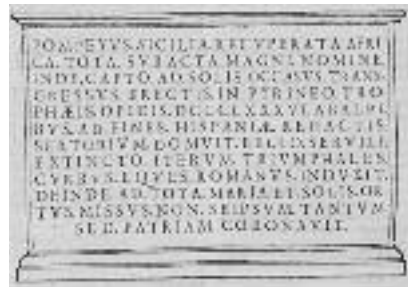 POMPEVVS.SICILIA.RECVPERATA.AFRI
CA.TOTA.SVBACTA.MAGNI.NOMINE
INDE.CAPTO.AD.SOLIS.OCCASVS.TRANS
GRESSVS.ERECTIS.IN.PYRINEO.TRO
PHÆIS.OPIDIS.DCCCLXXXVI.AB.ALPI
BVS.AD.FINES.HISPANIÆ.REDACTIS
SERTORIVM.DOMVIT.BELLO.
EXTINCTO.ITERVM.TRIVMPHALES
CVRRVS.EQVES.ROMANVS.INDVXIT.
DEINDE.AD.TOTA.MARIA.ET.SOLIS.OR
TVS.MISSVS.NON.SEIPSVM.TANTVM
SED.PATRIAM.CORONAVIT.